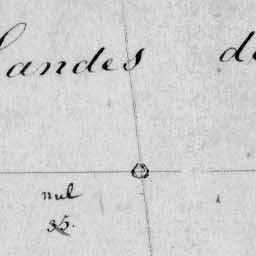 Landes de
nul
35.